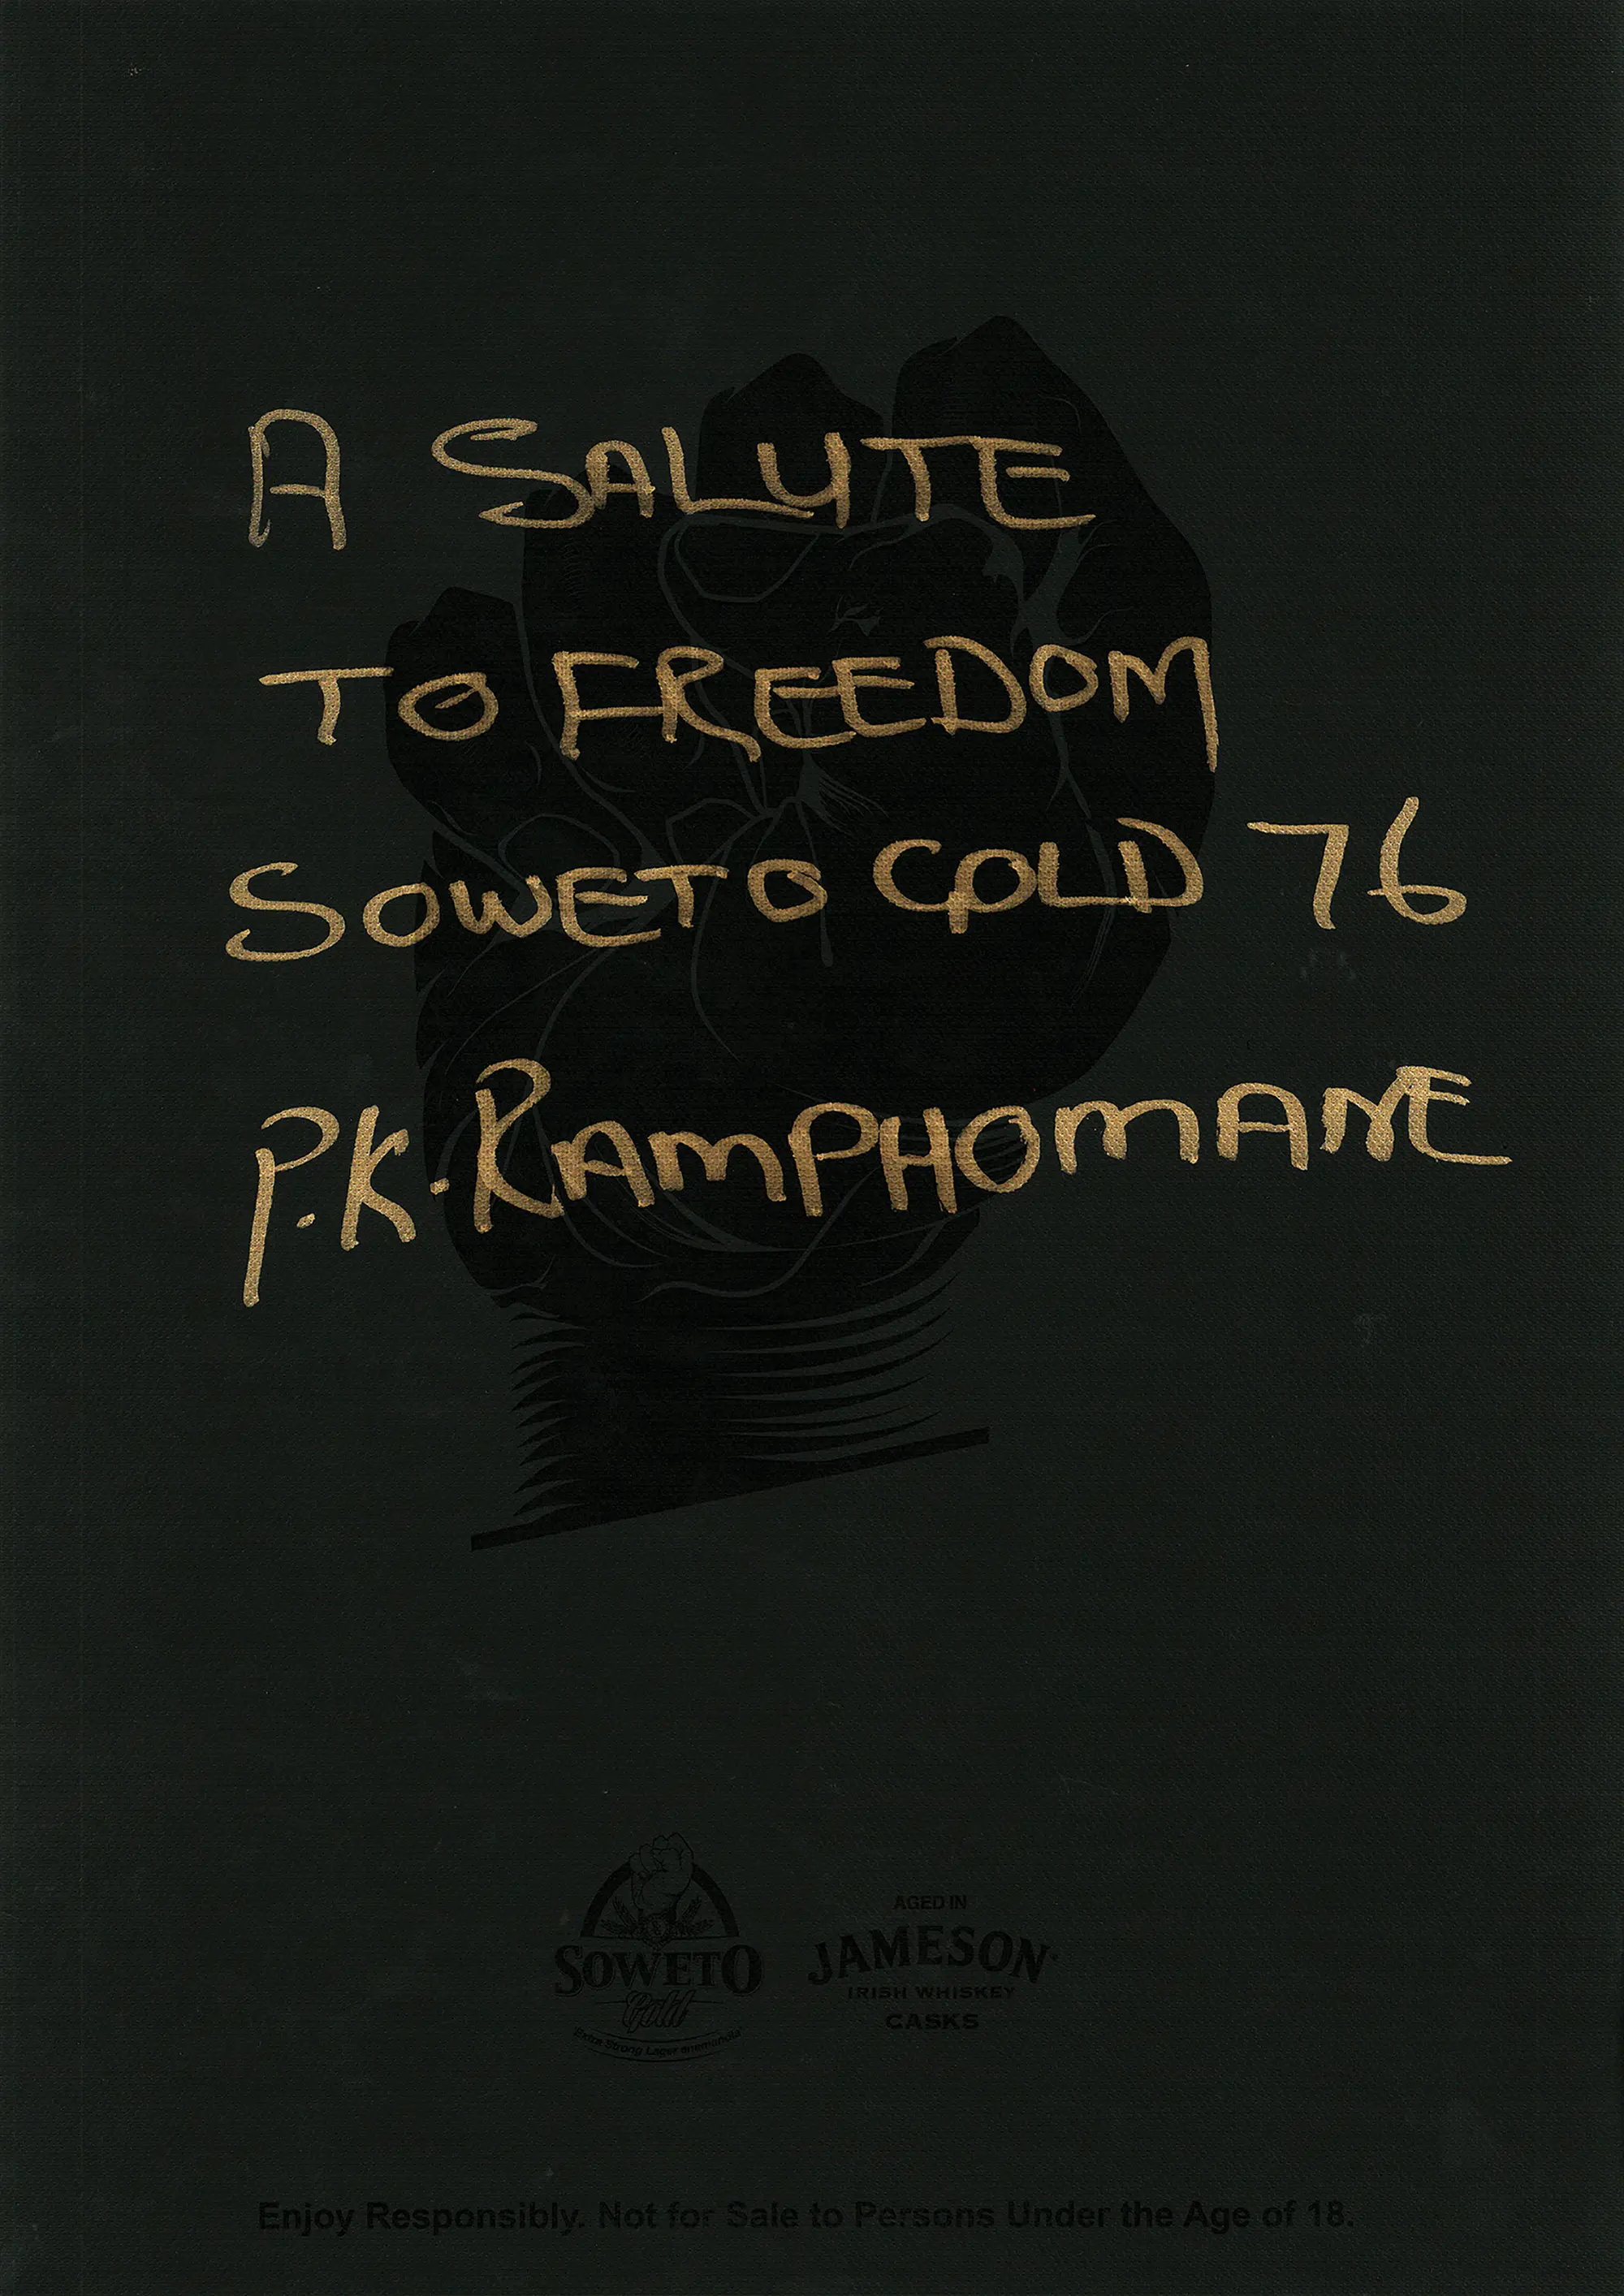 A SALUTE
TO FREEDOM
SOWETO GOLD 76
P.K. RAMPHOMANE
SOWETO
Gold
Extra Strong Lager
AGED IN
JAMESON®
IRISH WHISKEY
CASKS
Enjoy Responsibly. Not for Sale to Persons Under the Age of 18.